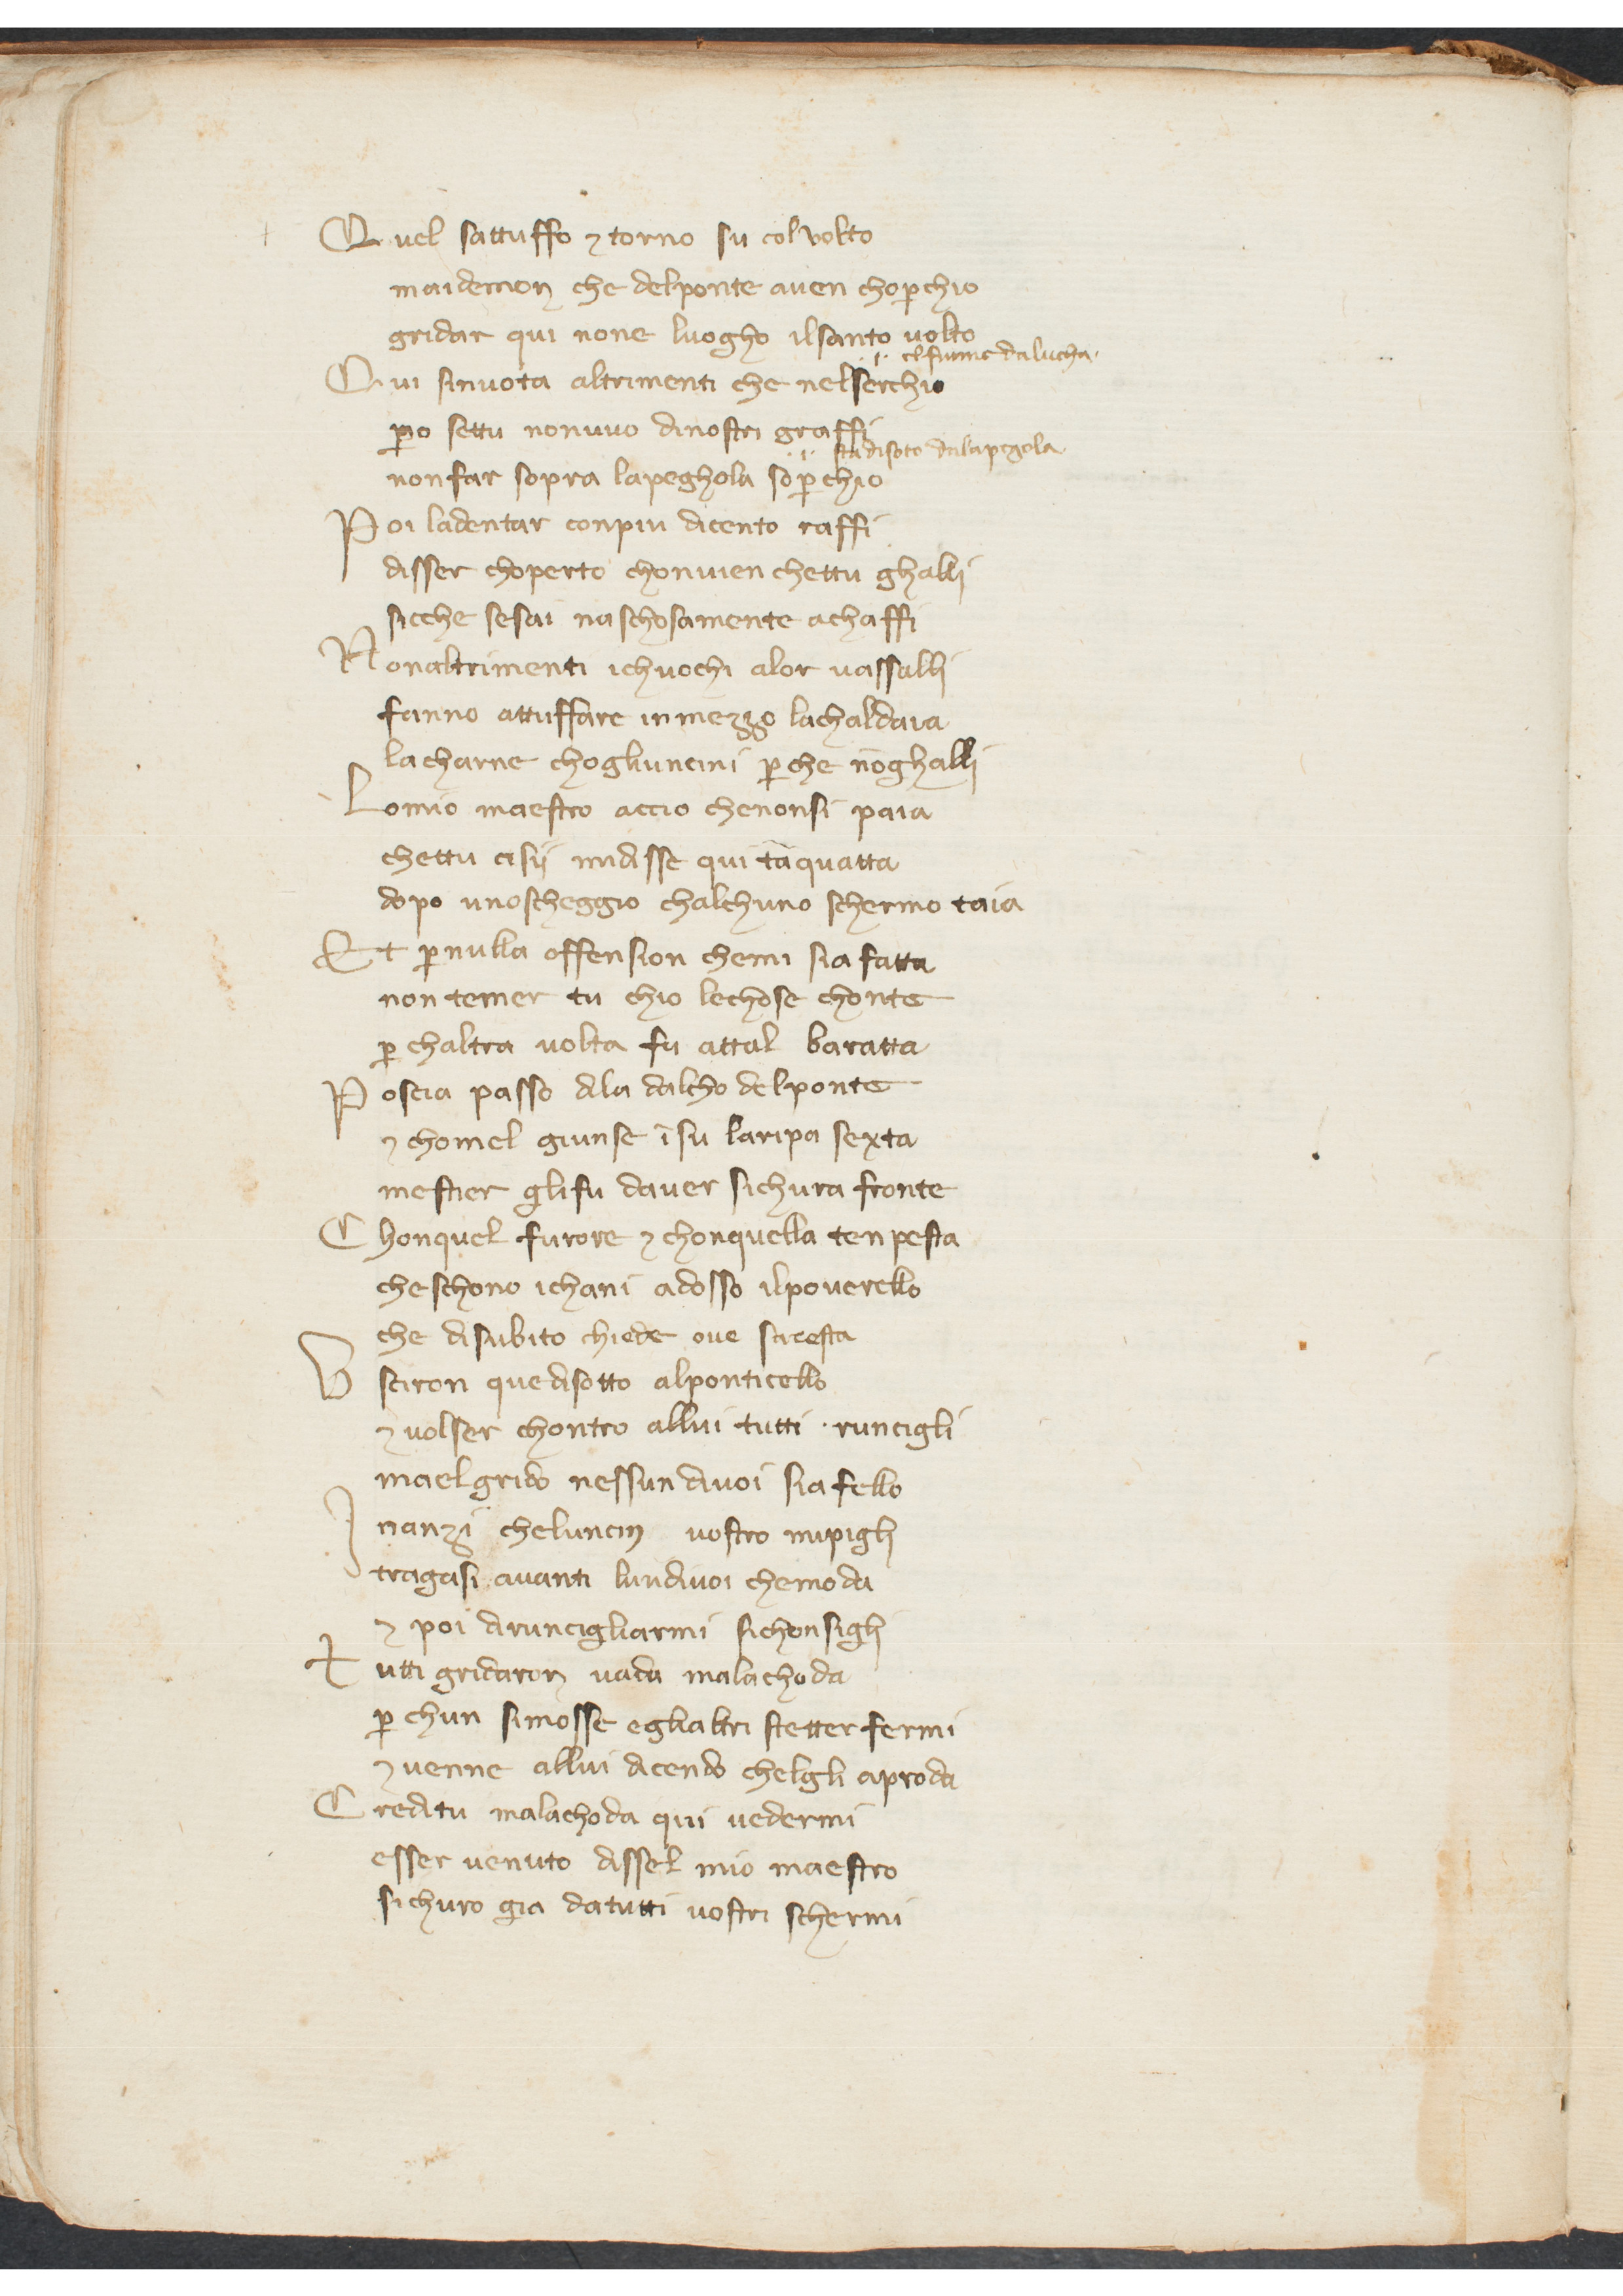 Quel sattuffo ⁊ torno su col volto
maidemon che delponte auen choꝑchio
gridar qui none luogho ilsanto uolto
.i. el fiume da lucha.
Qui sinuota altrimenti che nelserchio
ꝑo settu nonuuo dinostri graffi
.i. sta disoto dala pegola
nonfar sopra lapeghola soꝑchio
Poi ladentar conpiu dicento raffi
disser choperto chonuien chettu ghalli
sicche sesai naschosamente achaffi
Nonaltrimenti ichuochi alor uassalli
fanno attuffare inmezzo lachaldaia
lacharne chogliuncini ꝑche nōghalli
Lomio maestro accio chenonsi paia
chettu cisij midisse qui taquatta
dopo unoscheggio chalchuno schermo taia
Et ꝑnulla offension chemi sia fatta
non temer tu chio lechose chonte
ꝑ chaltra uolta fu attal baratta
Poscia passo dila dalcho delponte
⁊ chomel giunse ī su laripa sexta
mestier glifu dauer sichura fronte
Chonquel furore ⁊ chonquella tenpesta
cheschono ichani adosso ilpouerello
che disubito chiede oue saresta
Vsciron quedisotto alponticello
⁊ uolser chontro allui tutti runcigli
maelgrido nessun diuoi sia fello
Inanzi cheluncin uostro mipigli
tragasi auanti lundiuoi chemoda
⁊ poi diruncigliarmi sichonsigli
tutti gridaron uada malachoda
ꝑ chun simosse egliàltri stetter fermi
⁊ uenne allui dicendo chelgli aproda
Creditu malachoda qui uedermi
esser uenuto dissel mio maestro
sichuro gia datutti uostri schermi